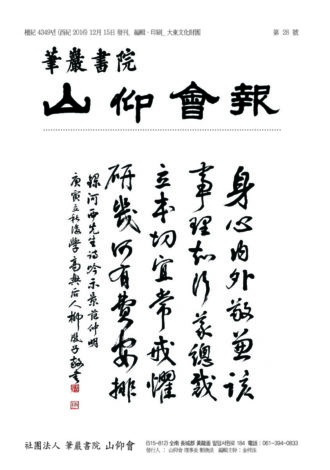 檀紀 4349년 (西紀 2016) 12月 15日 發刊, 編輯·印刷_ 大東文化財團 第 28 號
筆巖書院
山仰會報
身心內外敬兼該
事理知行義總裁
立本切宜常戒懼
研幾何有費安排
錄河西先生詩吟示景范仲明
庚寅立秋後學高興后人柳風子敬書
社團法人 筆巖書院 山仰會
(515-812) 全南 長城郡 黃龍面 필암서원로 184 電話 : 061-394-0833
發行人 : 山仰會 理事長 編輯主幹 :